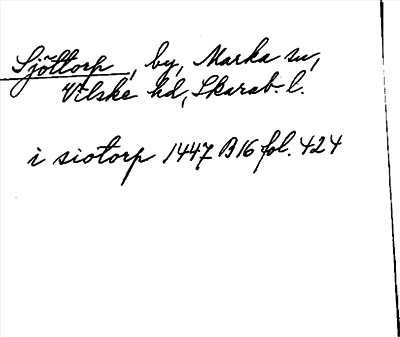 Sjöttorp, by, Marka sn,
Vilske hd, Skarab. l.
i siotorp 1447 B16 fol. 424